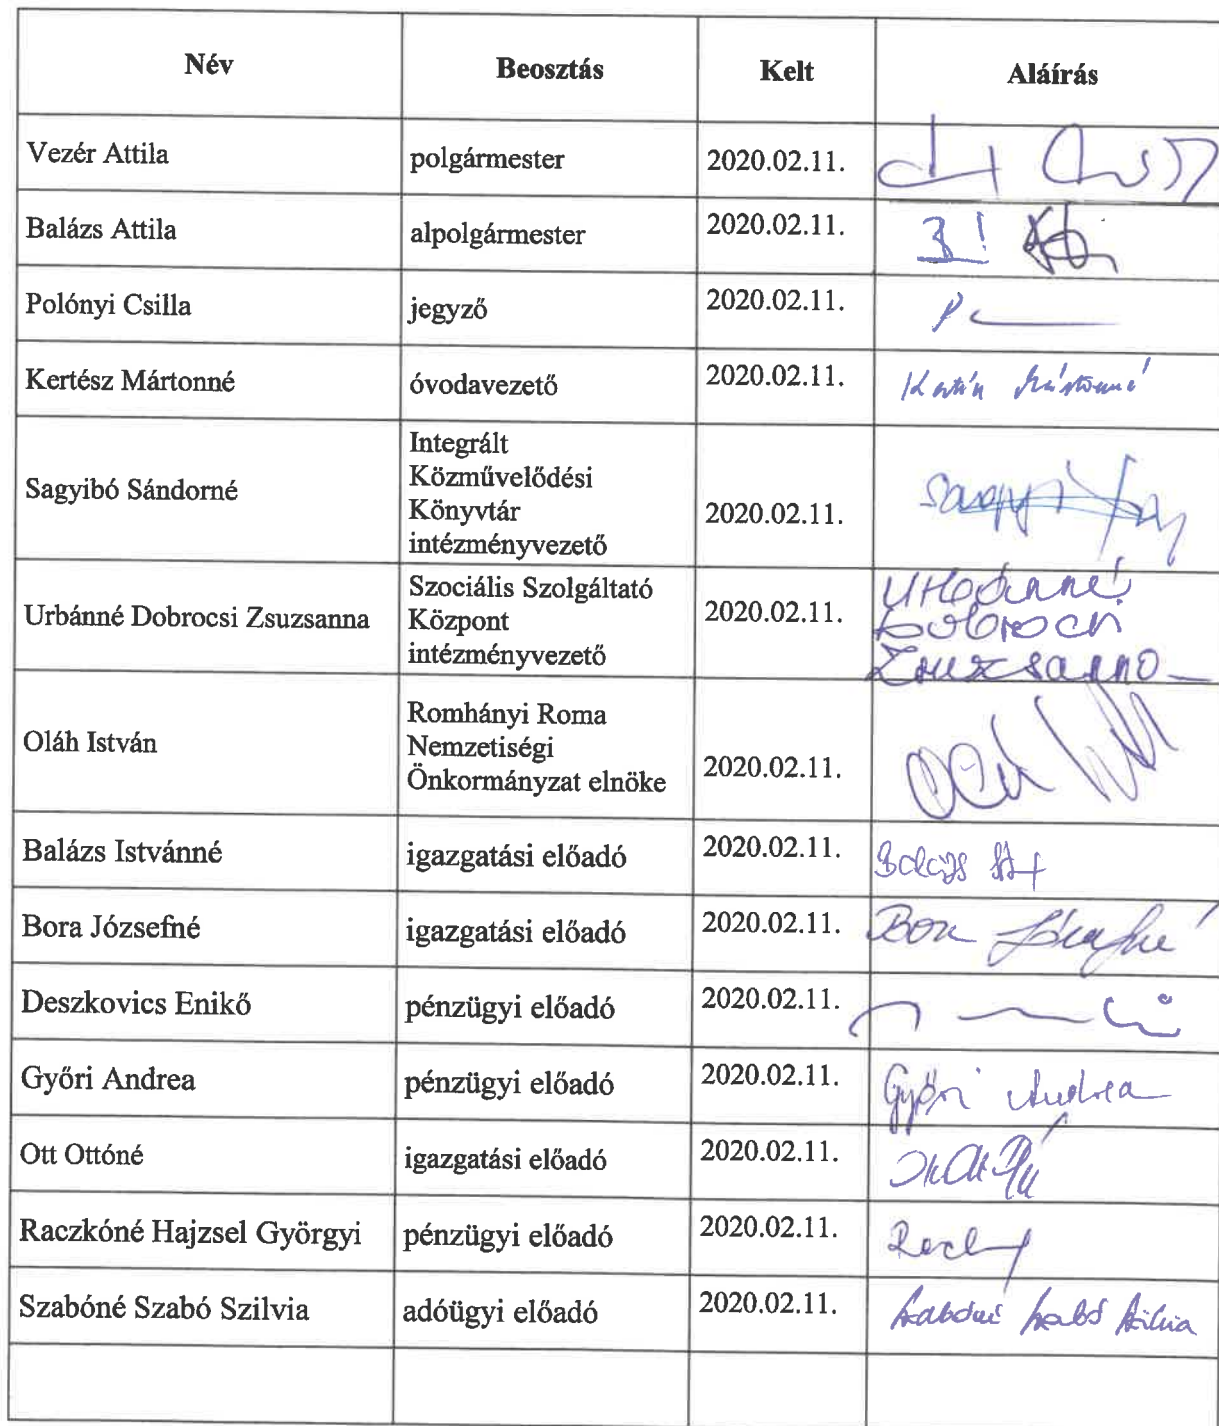 Név Beosztás Kelt Aláírás
Vezér Attila polgármester 2020.02.11.
Balázs Attila alpolgármester 2020.02.11.
Polónyi Csilla jegyző 2020.02.11.
Kertész Mártonné óvodavezető 2020.02.11.
Integrált
Közművelődési
Sagyibó Sándorné Könyvtár 2020.02.11.
intézményvezető
Szociális Szolgáltató
Urbánné Dobrocsi Zsuzsanna Központ 2020.02.11. Urbánné
intézményvezető Dobrocsi
Zsuzsanna
Romhányi Roma
Oláh István Nemzetiségi
Önkormányzat elnöke 2020.02.11.
Balázs Istvánné igazgatási előadó 2020.02.11.
Bora Józsefné igazgatási előadó 2020.02.11. Bora Józsefné
Deszkovics Enikő pénzügyi előadó 2020.02.11.
Győri Andrea pénzügyi előadó 2020.02.11. Győri Andrea
Ott Ottóné igazgatási előadó 2020.02.11.
Raczkóné Hajzsel Györgyi pénzügyi előadó 2020.02.11.
Szabóné Szabó Szilvia adóügyi előadó 2020.02.11. Szabóné Szabó Szilvia